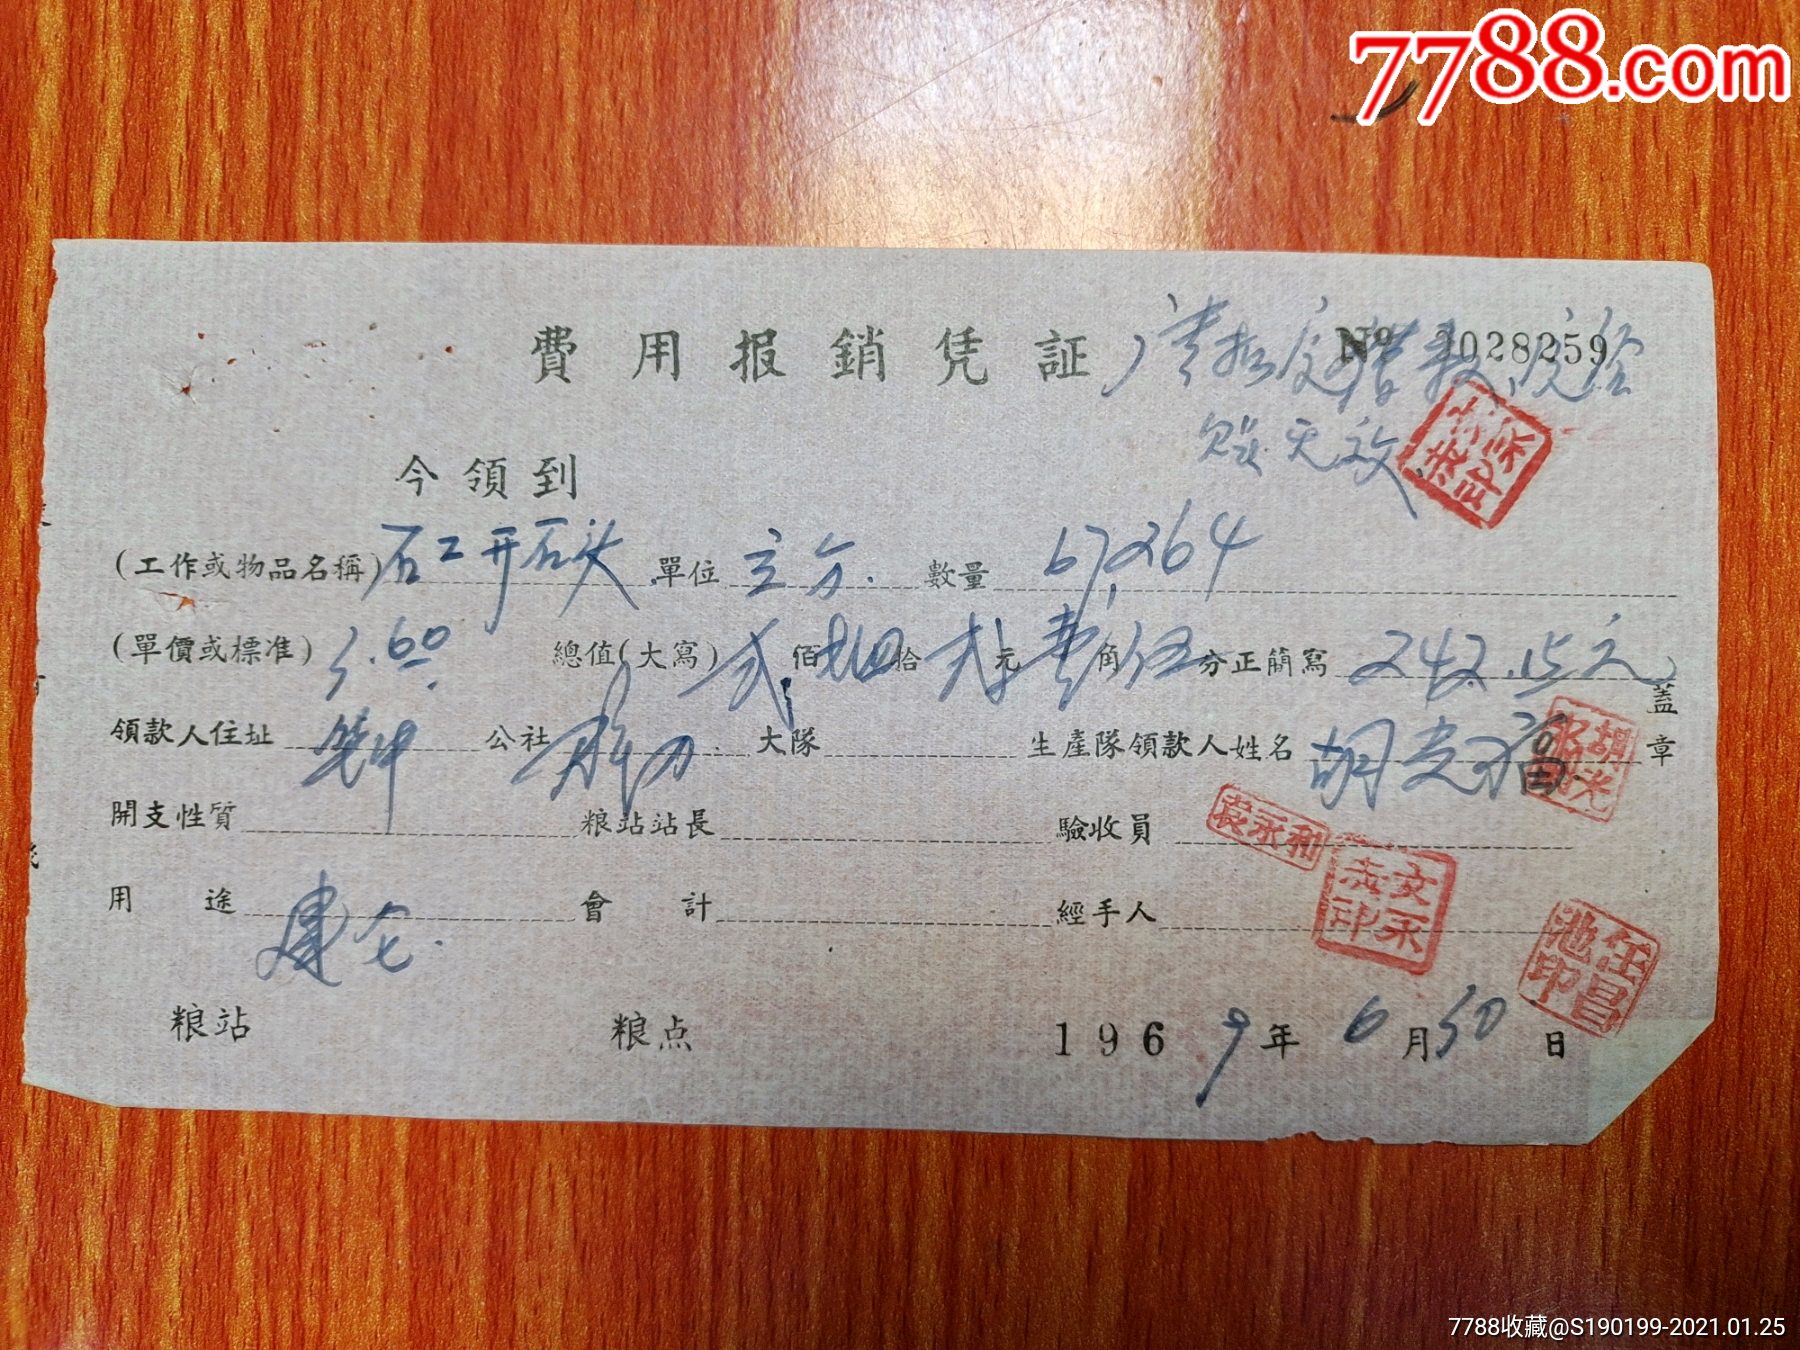 7788.com
費用报銷凭証 № 2028259
今領到
(工作或物品名稱) 石工开石头 單位 立方. 數量 67,264
(單價或標准) 3.60 總值(大寫) 弍佰肆拾弍元壹角伍分正簡寫 242.15元
領款人住址 公社 大隊 生產隊領款人姓名 胡光福 蓋章
胡光
開支性質 粮站站長 驗收員
袁永和
用途 建仓. 會計 經手人
任昌池印
粮站 粮点 1969年6月30日
7788收藏@S190199-2021.01.25